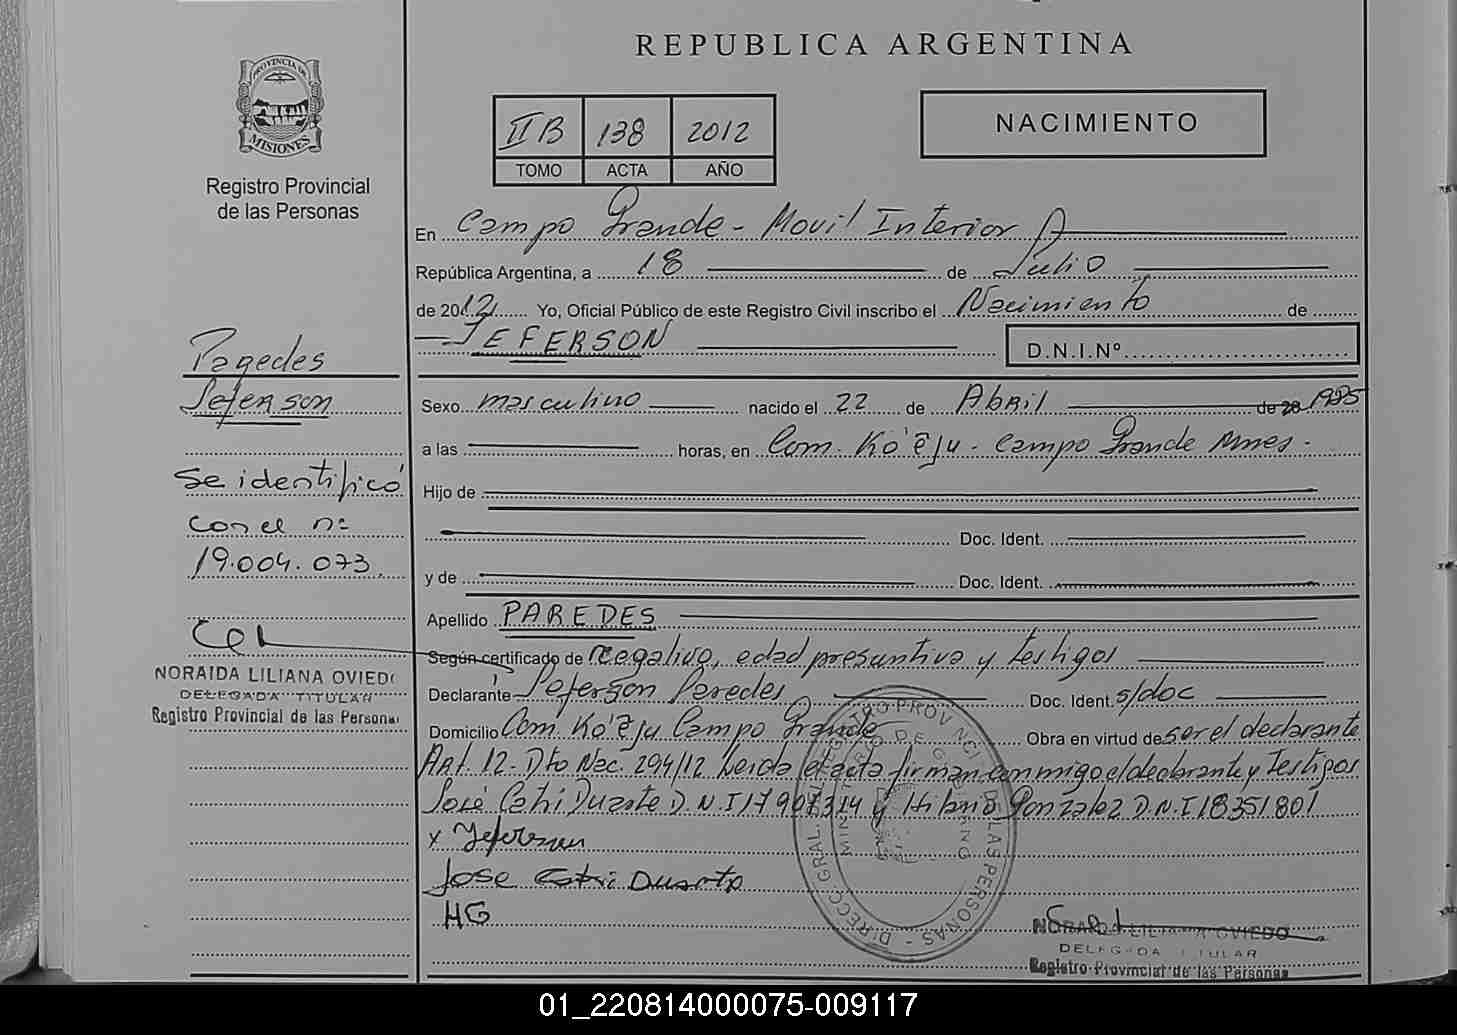 REPUBLICA ARGENTINA
PROVINCIA DE
MISIONES
Registro Provincial
de las Personas
II B 138 2012
TOMO ACTA AÑO
NACIMIENTO
En Campo Grande - Movil Interior A
República Argentina, a 18 de Julio
de 2012 Yo, Oficial Público de este Registro Civil inscribo el Nacimiento de
JEFERSON
D.N.I.Nº
Paredes
Jeferson
Sexo masculino nacido el 22 de Abril de 20 1985
a las horas, en Com. Ko'ẽju - Campo Grande Mnes -
Hijo de
Doc. Ident.
y de Doc. Ident.
Se identificó
con el nº
19.004.073.
Apellido PAREDES
Según certificado de negativo, edad presuntiva y testigos
Declarante Jeferson Paredes Doc. Ident. s/doc
Domicilio Com. Ko'ẽju Campo Grande Obra en virtud de ser el declarante
Art. 12 - Dto Nac. 294/12 Leida el acta firman conmigo el declarante y testigos
José Catri Duarte D.N.I 17907314 y Hilario Gonzalez D.N.I 18351801
x Jeferson
Jose Catri Duarte
HG
NORAIDA LILIANA OVIEDO
DELEGADA TITULAR
Registro Provincial de las Personas
NORAIDA LILIANA OVIEDO
DELEGADA TITULAR
Registro Provincial de las Personas
DIRECC. GRAL. DEL REGISTRO PROVINCIAL DE LAS PERSONAS
MINISTERIO DE GOBIERNO
01_220814000075-009117